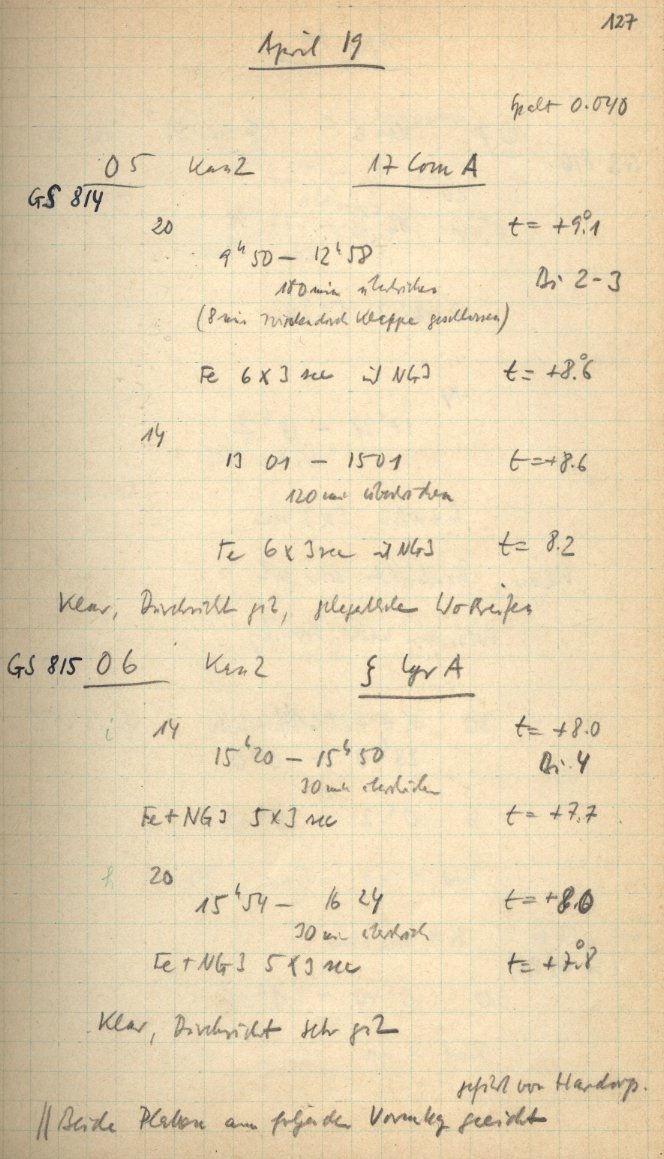 127
April 19
Spalt 0.040
05 Kas2 17 Com A
GS 814
20 t = +9°.1
9ʰ50 – 12ʰ58
180 min überstrichen Bi 2-3
(8 min zwischendurch Klappe geschlossen)
Fe 6 x 3 sec mit NG3 t = +8°.6
14
13 01 – 15 01 t = +8.6
120 min überstrichen
Fe 6 x 3 sec mit NG3 t = 8.2
Klar, Durchsicht gut, gelegentliche Wolkenstreifen
GS 815 06 Kas2 ζ Lyr A
i 14 t = +8.0
15ʰ20 – 15ʰ50 Bi. 4
30 min überstrichen
Fe+NG3 5x3 sec t = +7.7
h 20
15ʰ54 – 16 24 t = +8.0
30 min überstrich
Fe+NG3 5x3 sec t = +7°.8
Klar, Durchsicht sehr gut
von Hardorp.
|| Beide Platten am folgenden Vormittag geeicht